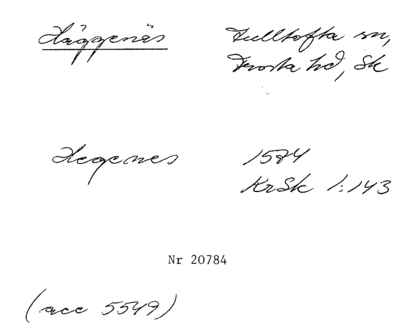 Häggenäs Fulltofta sn,
Frosta hd, Sk
Hegenes 1584
KrSk 1:143
Nr 20784
(acc 5549)